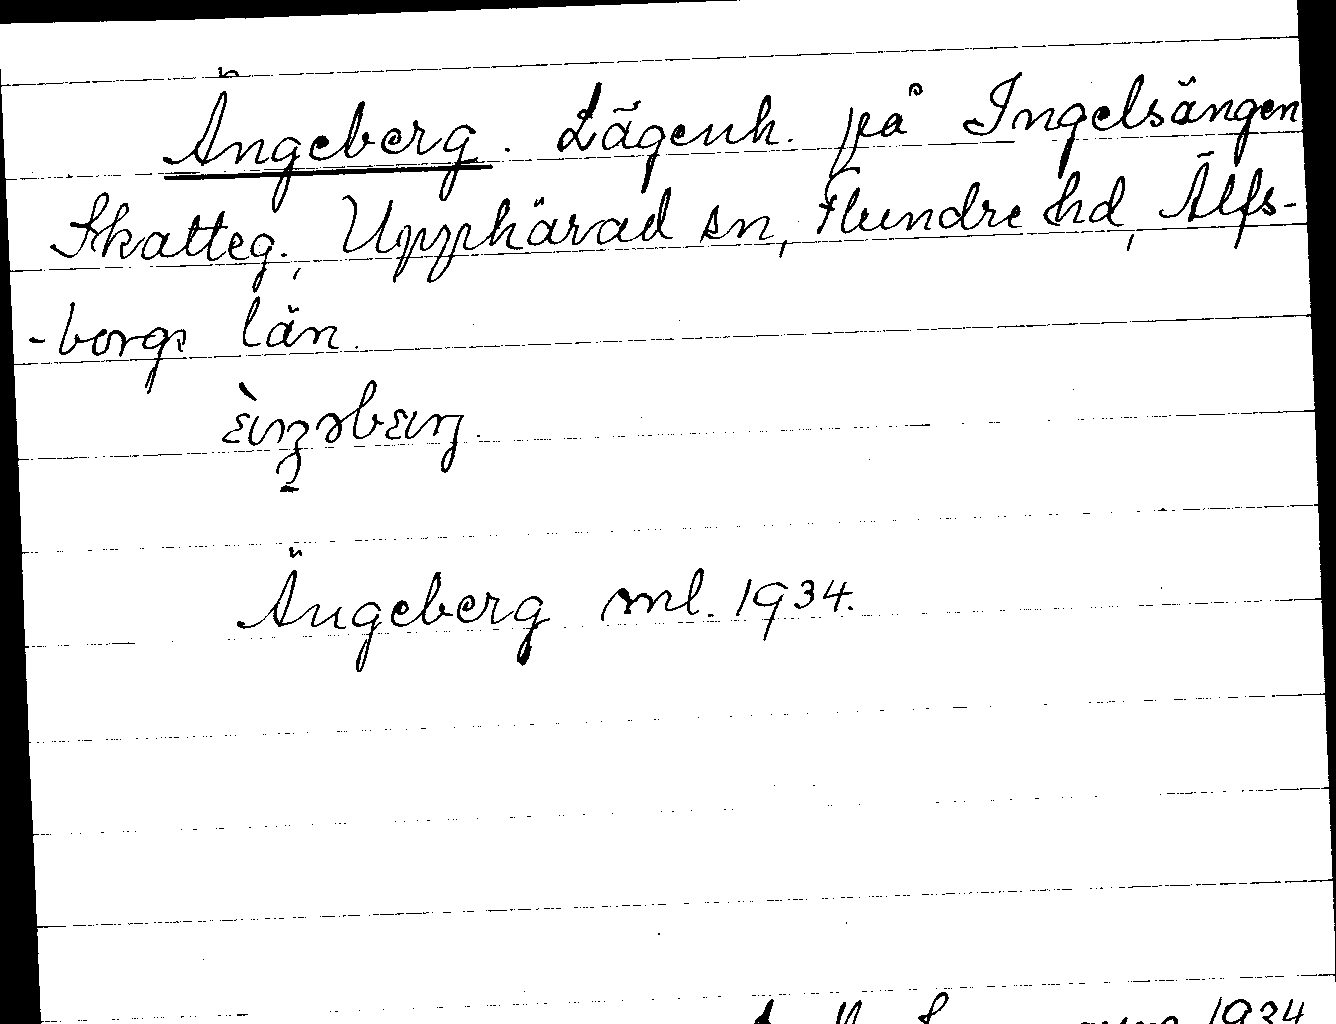 Ängeberg. Lägenh. på Ingelsängen
Skatteg., Upphärad sn, Flundre hd, Älfs-
-borgs län.
Ängeberg ml. 1934.
1934